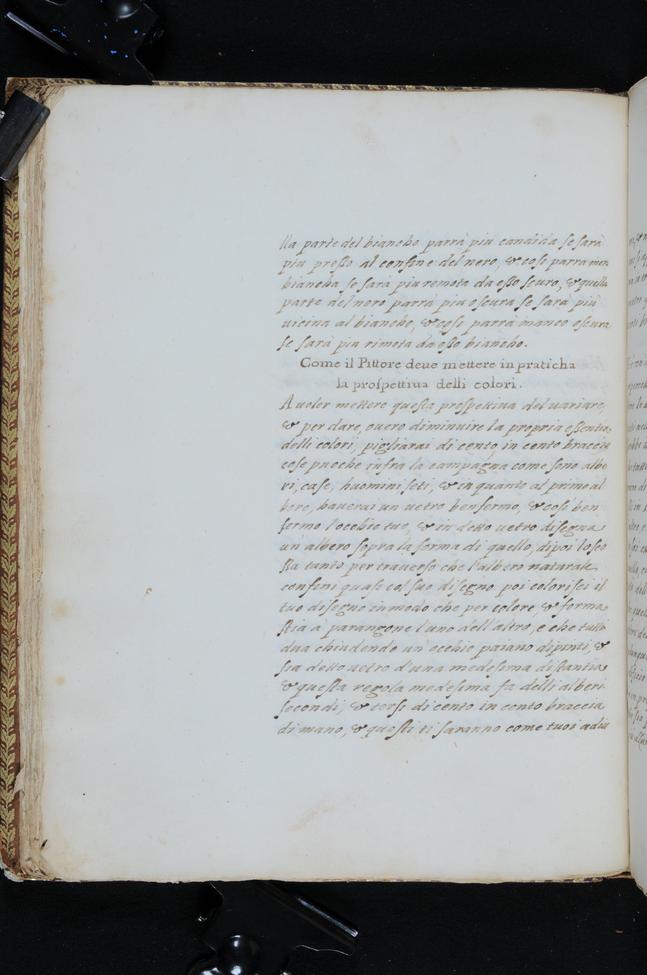 lla parte del biancho parrà piu candida se sarà
piu presso al confine del nero, & cosi parra men
biancha se sarà piu remota da esso scuro, & quella
parte del nero parrà piu oscura se sarà piu
uicina al biancho, & cosi parrà manco oscura
se sarà piu rimota da esso biancho.
Come il Pittore deue mettere in praticha
la prospettiua delli colori.
A uoler mettere questa prospettiua del uariare,
& perdare, ouero diminuire la propria essentia
delli colori, pigliarai di cento in cento braccia
cose puoche infra la campagna come sono albe
ri, case, huomini, siti, & in quanto al primo al
bero, hauerai un uetro ben fermo, & cosi ben
fermo l'occhio tuo, & in detto uetro disegna
un albero sopra la forma di quello, dipoi lo sco
sta tanto per trauerso che l'albero naturale
confini quasi col suo disegno poi colorisci il
tuo disegno in modo che per colore & forma
stia à parangone l'uno dell'altro, e che tutti
dua chiudendo un occhio paiano dipinti, &
sia detto uetro d'una medesima distantia
& questa regola medesima fa delli alberi
secondi, & terzi di cento in cento braccia
di mano, & questi ti saranno come tuoi adiu